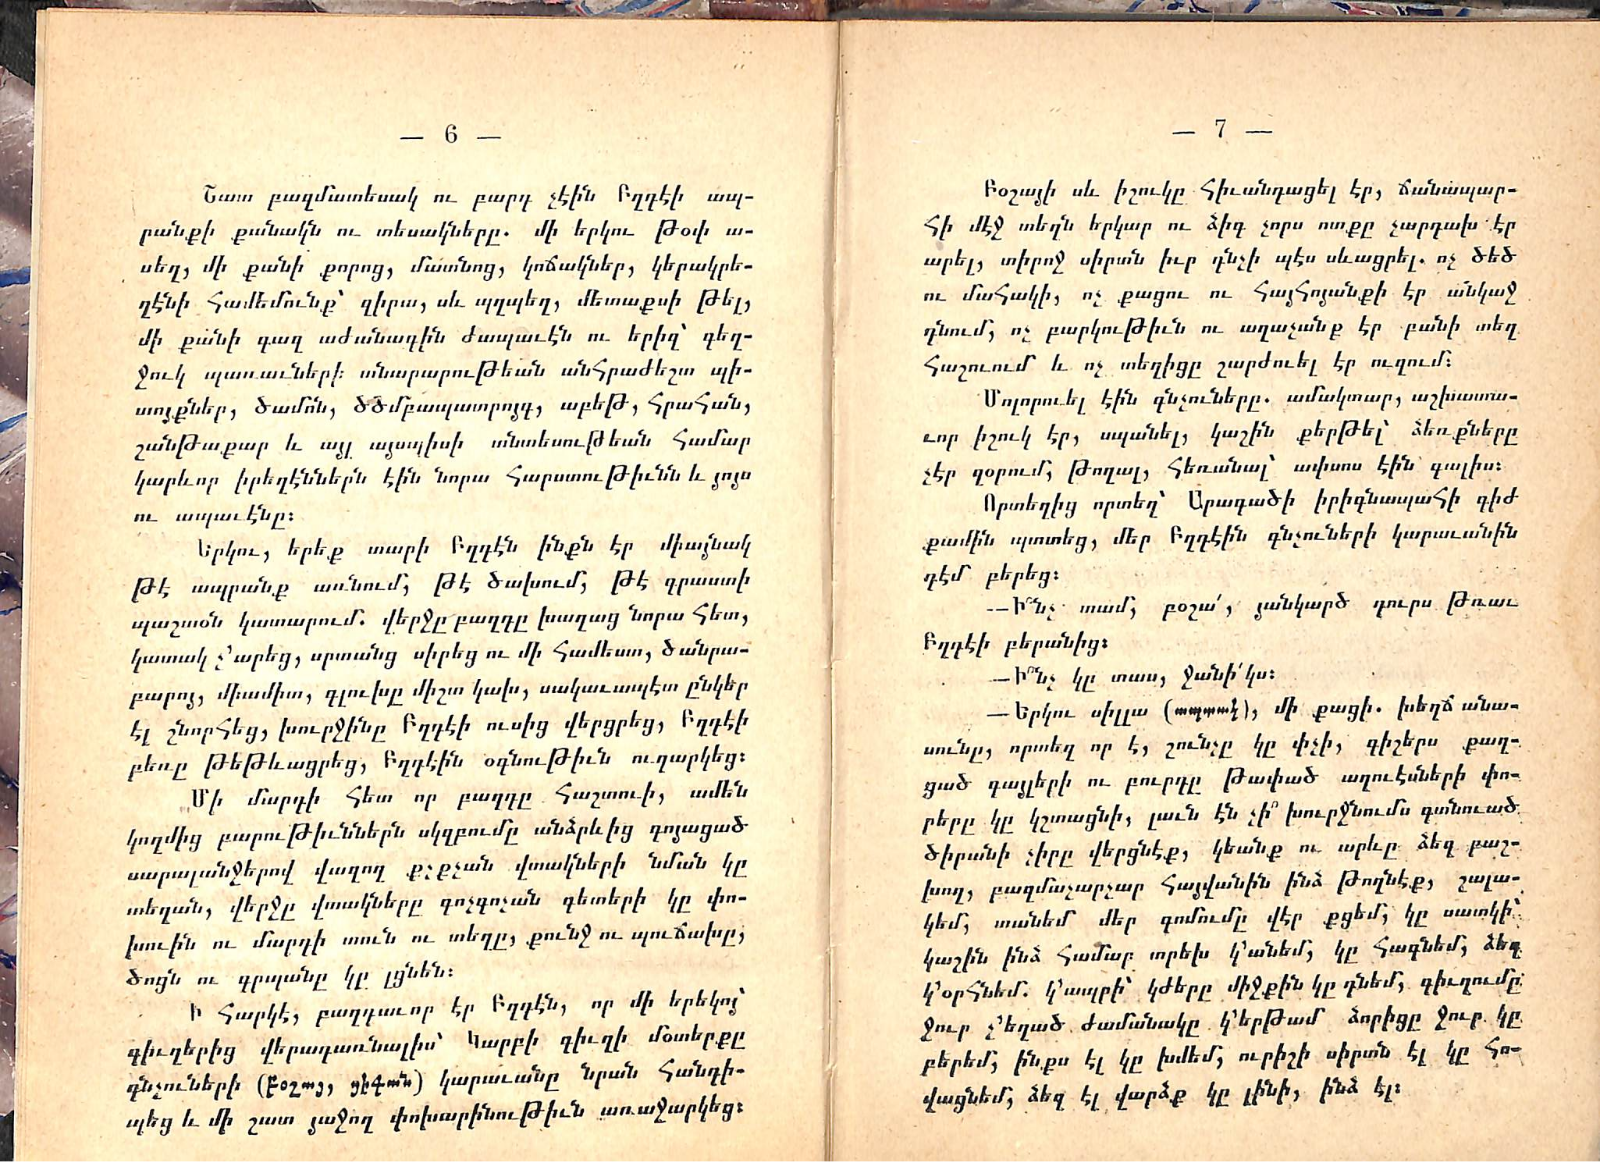 — 6 —
Շատ բազմատեսակ ու բարդ չէին Բղդէի ապ-
րանքի քանակն ու տեսակները. մի երկու թօփ ա-
սեղ, մի քանի քորոց, մատնոց, կոճակներ, կերակրե-
ղէնի համեմունք՝ զիրա, սև պղպեղ, մետաքսի թել,
մի քանի գազ աժանագին ժապաւէն ու երիզ՝ գեղ-
ջուկ պառաւների տնարարութեան անհրաժեշտ պի-
տոյքներ, ծամոն, ծծմբապատրոյգ, աբեթ, հրահան,
շանթաքար և այլ այսպիսի տնտեսութեան համար
կարևոր իրեղէններն էին նորա հարստութիւնն և յոյս
ու ապաւէնը։
Երկու, երեք տարի Բղդէն ինքն էր միայնակ
թէ ապրանք առնում, թէ ծախում, թէ գրաստի
պաշտօն կատարում. վերջը բաղդը խաղաց նորա հետ,
կատակ չ՚արեց, սրտանց սիրեց ու մի համեստ, ծանրա-
բարոյ, միամիտ, գլուխը միշտ կախ, սակաւապէտ ընկեր
էլ շնորհեց, խուրջինը Բղդէի ուսից վերցրեց, Բղդէի
բեռը թեթևացրեց, Բղդէին օգնութիւն ուղարկեց։
Մի մարդի հետ որ բաղդը հաշտուի, ամեն
կողմից բարութիւններն սկզբումը անձրևից գոյացած
սարալանջերով վազող քչքչան վտակների նման կը
տեղան, վերջը վտակները գոչգոչան գետերի կը փո-
խուին ու մարդի տուն ու տեղը, քունջ ու պուճախը,
ծոցն ու գրպանը կը լցնեն։
Ի հարկէ, բաղդաւոր էր Բղդէն, որ մի երեկոյ՝
գիւղերից վերադառնալիս՝ Կարբի գիւղի մօտերքը
գնչուների (բօշայ, ցիգան) կարաւանը նրան հանդի-
պեց և մի շատ յաջող փոխարինութիւն առաջարկեց։
— 7 —
Բօշայի սև իշուկը հիւանդացել էր, ճանապար-
հի մէջ տեղն երկար ու ձիգ չորս ոտքը չարդախ էր
արել, տիրոջ սիրտն իւր գնչի պէս սևացրել. ոչ ծեծ
ու մահակի, ոչ քացու ու հայհոյանքի էր անկաջ
դնում, ոչ բարկութիւն ու աղաչանք էր բանի տեղ
հաշուում և ոչ տեղիցը շարժուել էր ուզում։
Մոլորուել էին գնչուները. ամակտար, աշխատա-
ւոր իշուկ էր, սպանել, կաշին քերթել՝ ձեռքները
չէր զօրում, թողալ, հեռանալ՝ ափսոս էին գալիս։
Որտեղից որտեղ՝ Արագածի իրիգնապահի գիժ
քամին պտտեց, մեր Բղդէին գնչուների կարաւանին
դէմ բերեց։
—Ի՞նչ տամ, բօշա՛, յանկարծ դուրս թռաւ
Բղդէի բերանից։
—Ի՞նչ կը տաս, ջանի՛կս։
—Երկու սիլլա (ապտակ), մի քացի. խեղճ անա-
սունը, որտեղ որ է, շունչը կը փչի, գիշերս քաղ-
ցած գայլերի ու բուրդը թափած աղուէսների փո-
րերը կը կշտացնի, լաւն էն չի՞ խուրջնումս գտնուած
ծիրանի չիրը վերցնէք, կեանք ու արևը ձեզ բաշ-
խող, բազմաչարչար հայվանին ինձ թողնէք, շալա-
կեմ, տանեմ մեր գոմումը վէր քցեմ, կը սատկի՝
կաշին ինձ համար տրեխ կ՚անեմ, կը հագնեմ, ձեզ
կ՚օրհնեմ. կ՚ապրի՝ կժերը միջքին կը դնեմ, գիւղումը
ջուր չ՚եղած ժամանակը կ՚երթամ ձորիցը ջուր կը
բերեմ, ինքս էլ կը խմեմ, ուրիշի սիրտն էլ կը հո-
վացնեմ, ձեզ էլ վարձք կը լինի, ինձ էլ։